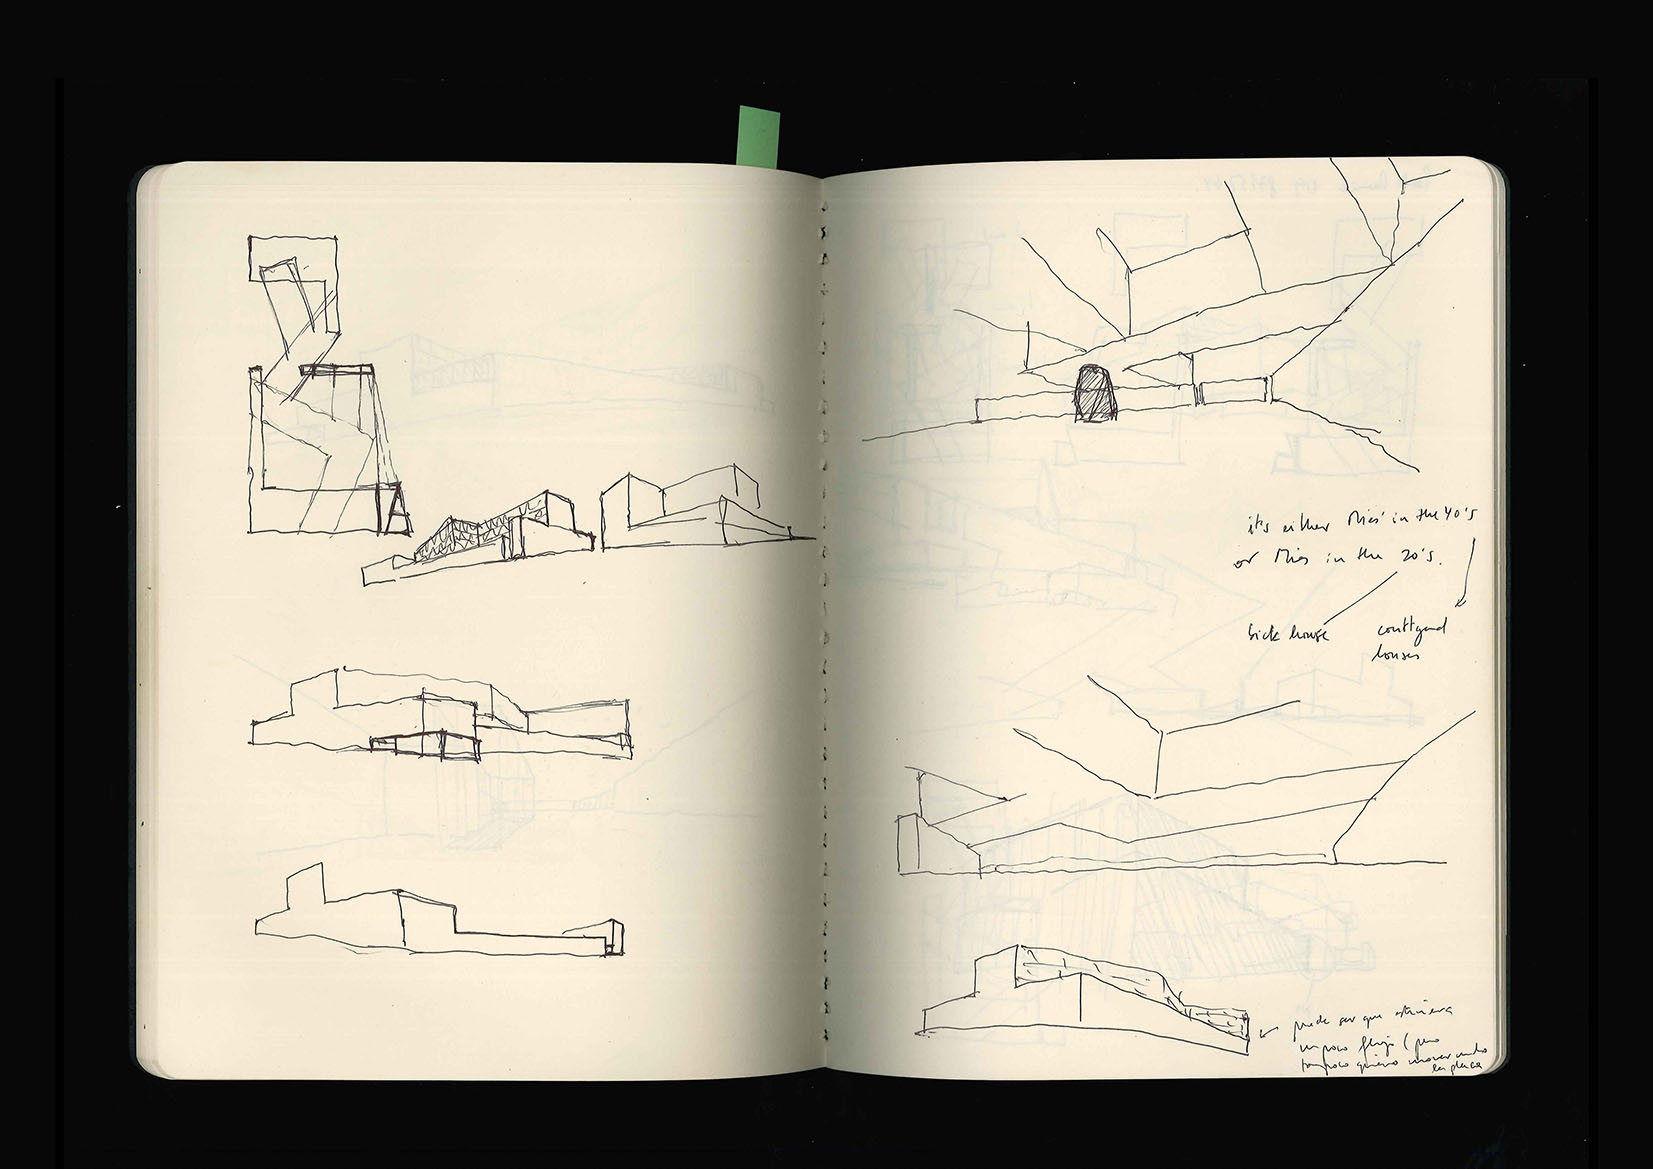 it's either Mies' in the 40's
or Mies in the 20's.
brick house
courtyard
houses
puede ser que estuviera
un poco flojo (pero
tampoco quiero mover mucho
la placa